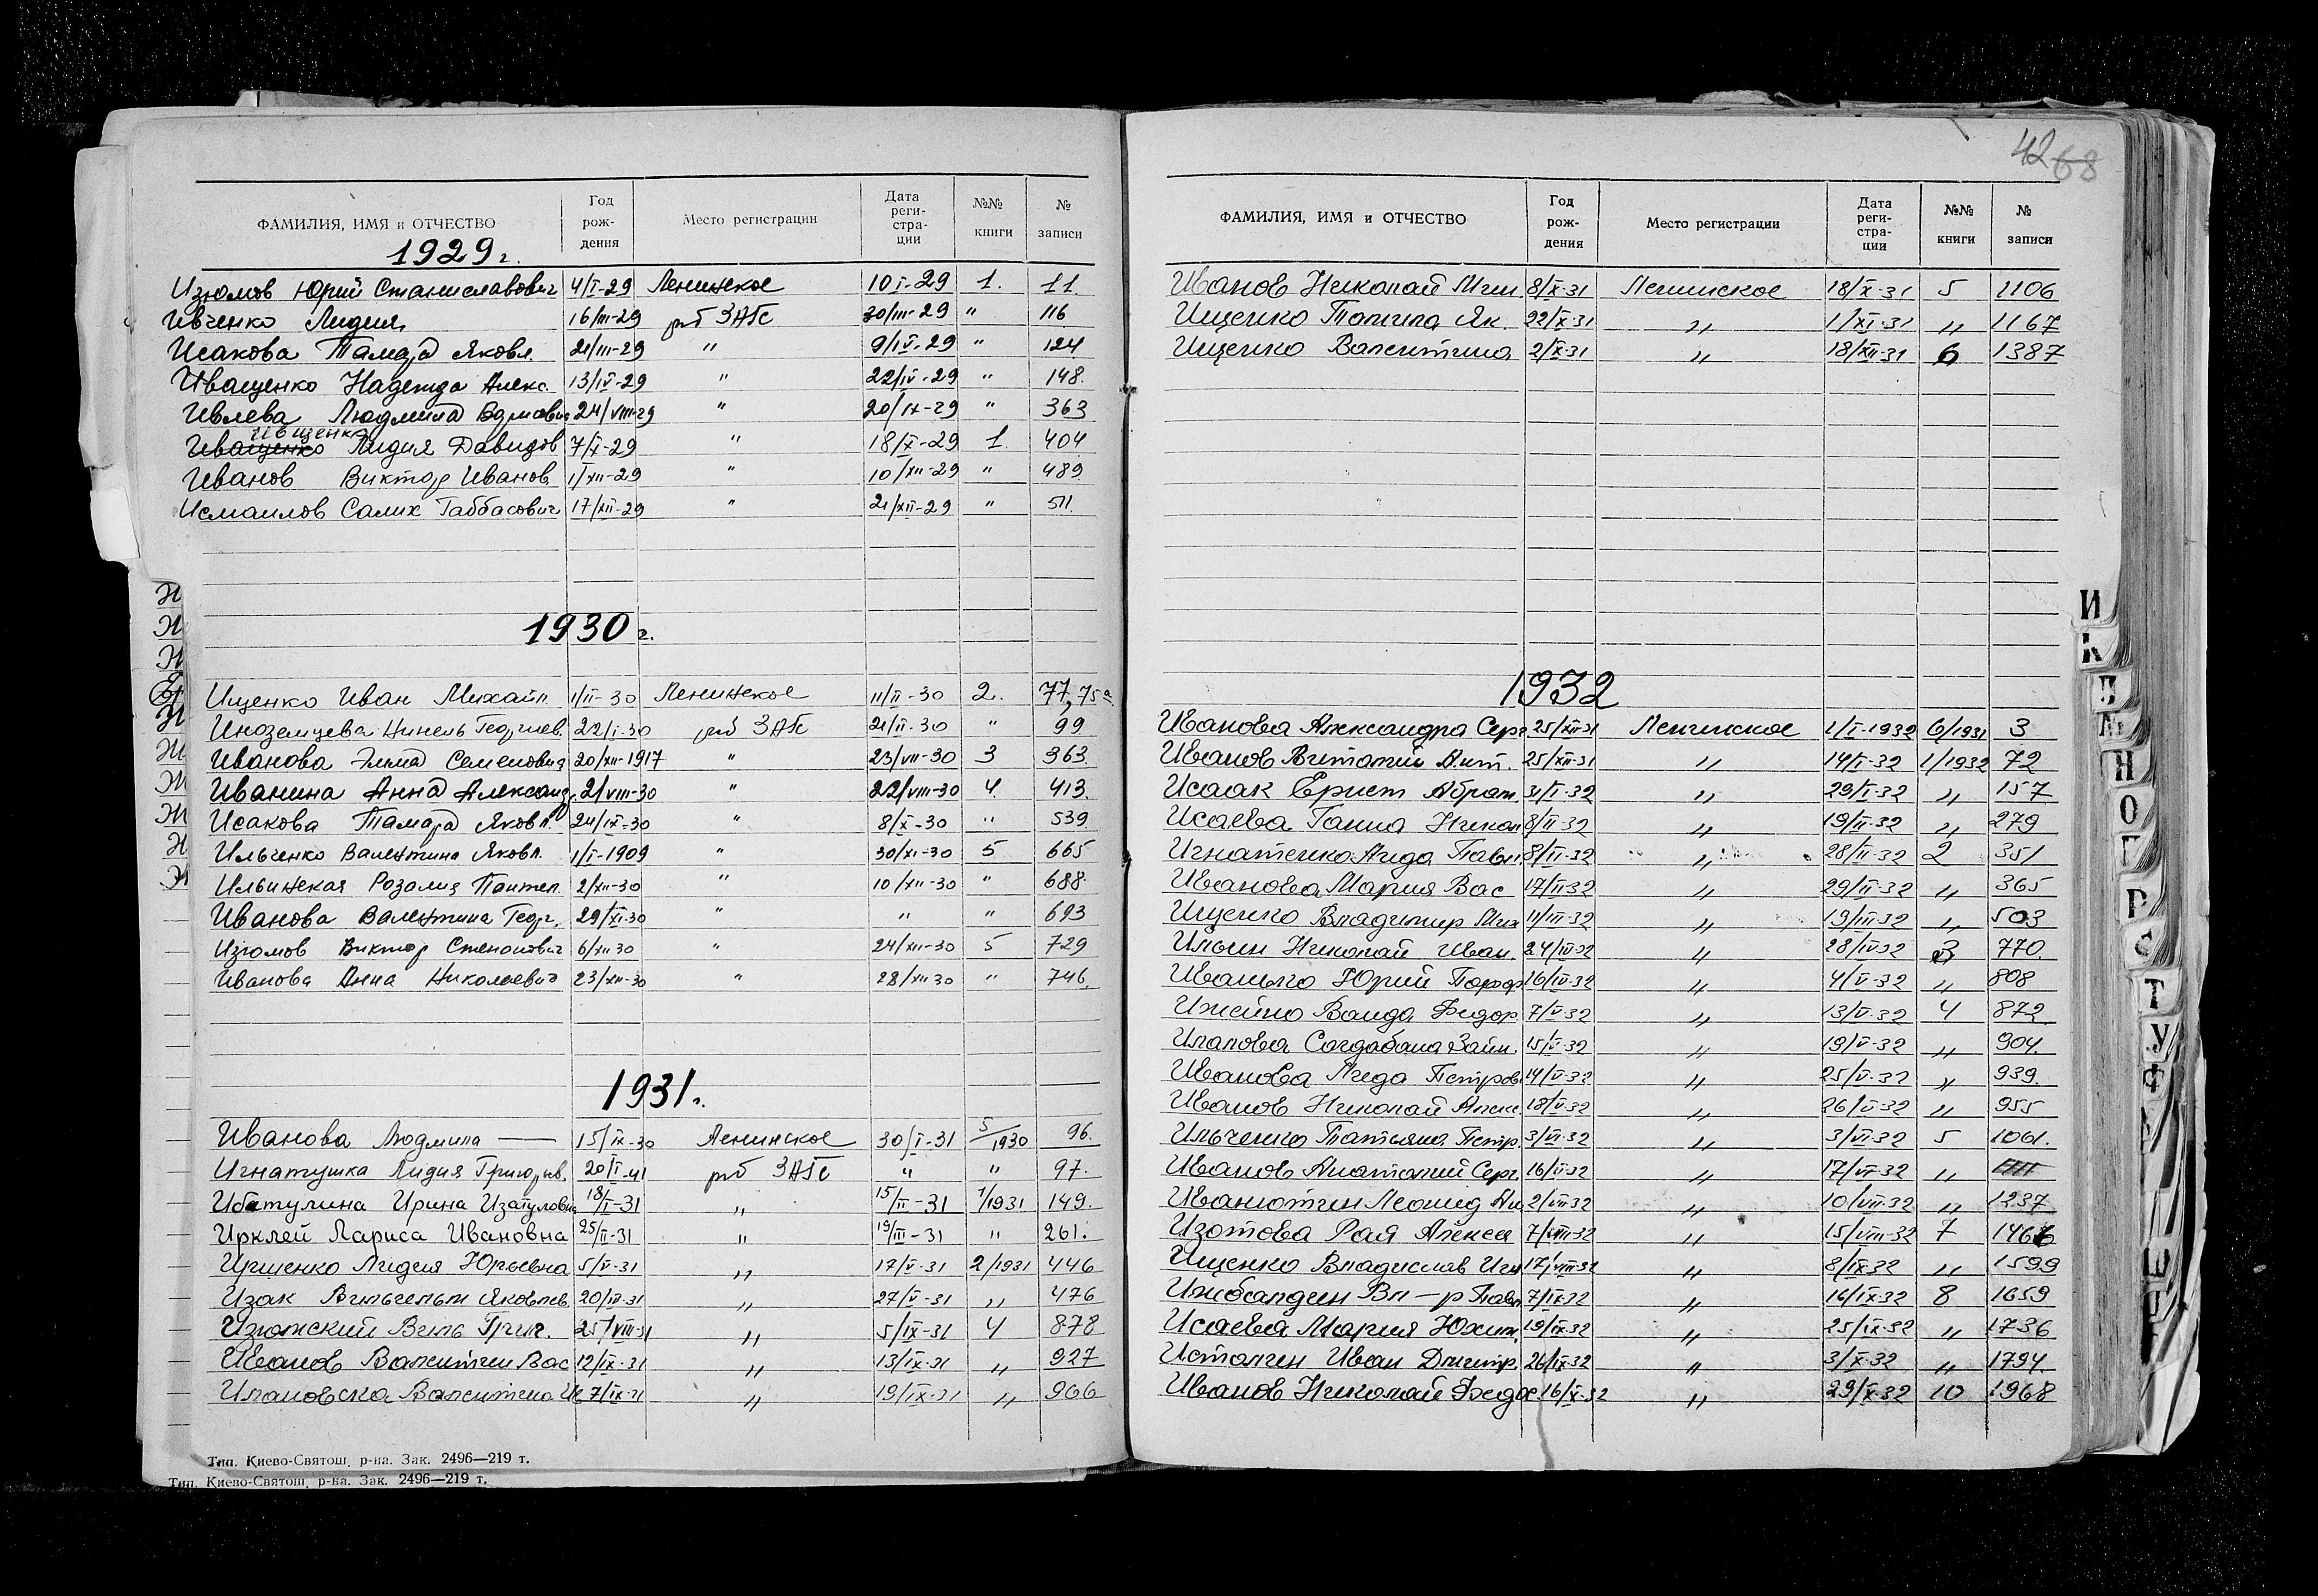 ФАМИЛИЯ, ИМЯ и ОТЧЕСТВО Год рождения Место регистрации Дата регистрации №№ книги № записи
1929 г.
Изюмов Юрий Станиславович 4/I-29 Ленинское 10 I-29 1. 11
Ивченко Лидия 16/III-29 рб ЗАГС 30/III-29 " 116
Исакова Тамара Яковл. 21/III-29 " 9/IV-29 " 124
Иващенко Надежда Алекс. 13/IV-29 " 22/IV-29 " 148.
Ивлева Людмила 24/VIII-29 " 20/IX-29 " 363
Ивщенко
Иващенко Лидия Давидов 7/X-29 " 18/X-29 1. 404
Иванов Виктор Иванов 1/XII-29 " 10/XII-29 " 489.
Исмаилов Салих Габбасович 17/XII-29 " 21/XII-29 " 511.
1930 г.
Ищенко Иван Михайл. 1/II-30 Ленинское 11/II-30 2. 77, 75а
Иноземцева Нинель Георгиев. 22/I-30 рб ЗАГС 21/II-30 " 99
Иванова Элла Семеновна 20/XII-1917 " 23/VII-30 3 363
Иванина Анна Александ. 2/VIII-30 " 22/VIII-30 4. 413.
Исакова Тамара Яковл. 24/IX-30 " 8/X-30 " 539.
Ильченко Валентина Яковл. 1/I-1909 " 30/XI-30 5 665
Ильинская Розалия Пантел. 2/XII-30 " 10/XII-30 " 688.
Иванова Валентина Георг. 29/XI-30 " " " 693
Изюмов Виктор Степанович 6/XII 30 " 24/XII-30 5 729
Иванова Анна Николаевна 23/XII-30 " 28/XII 30 " 746.
1931 г.
Иванова Людмила — 15/IX-30 Ленинское 30/I-31 5/1930 96.
Игнатушка Лидия Григорьев. 20/I-41 рб ЗАГС " " 97.
Ибатулина Ирина Изатуловна 18/I-31 " 15/II-31 1/1931 149.
Ирклей Лариса Ивановна 25/II-31 " 19/III-31 " 261.
Иршенко Лидия Юрьевна 5/V-31 " 17/V-31 2/1931 446
Изак Вильгельм Яковлев. 20/IV-31 " 27/V-31 " 476
Изюмский Виль Григ. 25/VIII-31 " 5/IX-31 4 878
Иванов Валентин Вас 12/IX-31 " 13/IX-31 " 927
Валентина 7/IX-31 " 19/IX-31 " 966
Тип. Киево-Святош. р-на. Зак. 2496—219 т.
Тип. Киево-Святош. р-на. Зак. 2496—219 т.
42 68
ФАМИЛИЯ, ИМЯ и ОТЧЕСТВО Год рождения Место регистрации Дата регистрации №№ книги № записи
Иванов Николай Мих 8/X-31 Ленинское 18/X-31 5 1106
Ищенко Галина Як. 22/X-31 " 1/XI-31 " 1167
Ищенко Валентина 2/X-31 " 18/XII-31 6 1387
1932
Иванова Александра Серг 25/XII-31 Ленинское 1/I-1932 6/1931 3
Иванов Виталий Ант. 25/XII-31 " 14/I-32 1/1932 72
Исаак Ернст Абрам. 3/I-32 " 29/I-32 " 157
Исаева Ганна Никол 8/II-32 " 19/II-32 " 279
Игнатенко Аида Павл. 8/II-32 " 28/II-32 2 351
Иванова Мария Вас 17/II-32 " 29/II-32 " 365
Ищенко Владимир Мих 11/III-32 " 19/III-32 " 503
Ильин Николай Иван. 24/III-32 " 28/IV-32 3 770.
Юрий 16/IV-32 " 4/V-32 " 808
Ванда Федор. 7/V-32 " 13/V-32 4 872
15/V-32 " 19/V-32 " 904.
Иванова Лида Петров 14/V-32 " 25/V-32 " 939.
Иванов Николай Алекс. 18/V-32 " 26/V-32 " 955
Ильченко Татьяна Петр. 3/VI-32 " 3/VI-32 5 1061.
Иванов Анатолий Серг. 16/VI-32 " 17/VI-32 "
Иванютин Леонид Ан. 2/VII-32 " 10/VII-32 " 1237
Изотова Рая Алексе 7/VIII-32 " 15/VIII-32 7 1466
Ищенко Владислав Игн 17/VIII-32 " 8/IX-32 " 1599
Ижбалдин Вл—р Павл 7/IX-32 " 16/IX-32 8 1659
Исаева Мария Юхим. 19/IX-32 " 25/IX-32 " 1736
Истомин Иван Дмитр. 26/IX-32 " 3/X-32 " 1794
Иванов Николай Федо 16/X-32 " 29/X-32 10 1968
И
К
Л
М
Н
О
П
Р
С
Т
У
Ф
Ш